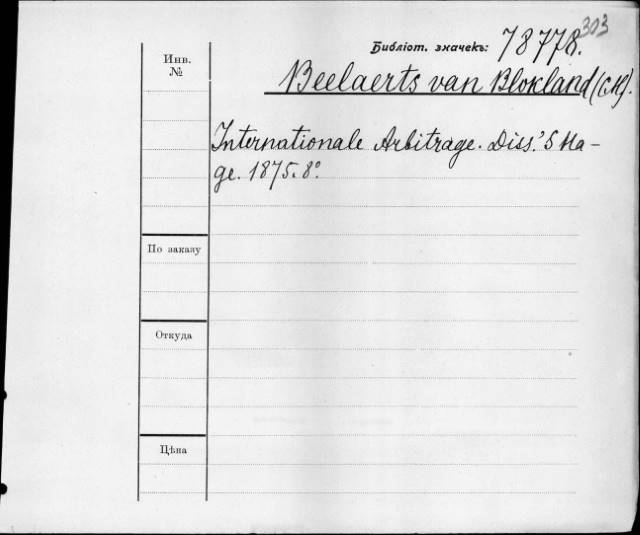 303
Библіот. значекъ: 78778.
Инв.
№
Beelaerts van Blokland (G.M).
Internationale Arbitrage. Diss. 'S Ha-
ge. 1875. 8º.
По заказу
Откуда
Цѣна